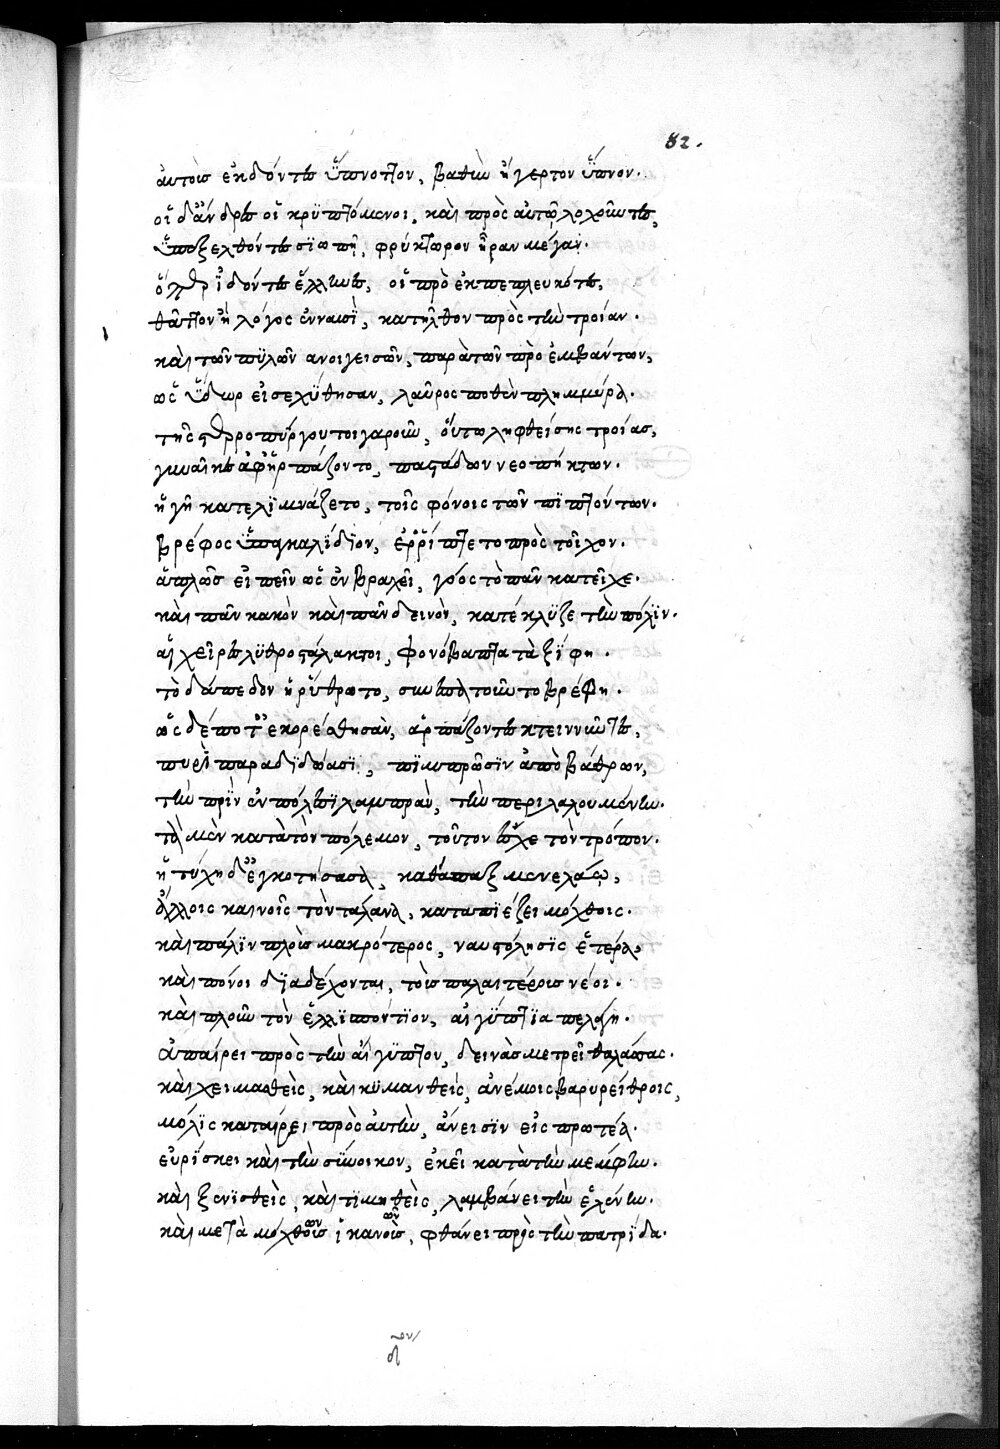 82.
αὐτοὶς ἐκδόντες ὕπνοττον, βαθὺν ἠγερτον ὕπνον.
οἱ δἄνδρες οἱ κρϋπτόμενοι, καὶ πρὸς αὐτῶ λοχοῦντες,
ὑπεξελθόντες σϊωπῇ, φρύκτωρον ἦραν μέγαν.
ὅπερ ἰδόντες ἕλληνες, οἱ πρὸ ἐκπεπλευκότες,
θᾶττον ἢ λόγος ἐνναυσὶ, κατῆλθον πρὸς τὴν τροίαν.
καὶ τῶν πϋλῶν ανοιγεισῶν, παρὰ τῶν πρὸ ἐμβάντων,
ὡς ὕδωρ εἰσεχύθησαν, λαῦρος ποθὲν πλημμύρα.
τῆς στερροπύργου τοιγαροῦν, οὕτω ληφθείσης τροίας,
γυναῖκες ἀφηρπάζοντο, παστάδων νεοπήκτων.
ἡ γῆ κατελϊμνάζετο, τοῖς φόνοις τῶν πϊπτόντων.
βρέφος ὑπαγκαλίδϊον, ἐῤῥίπτετο πρὸς τοῖχον.
ἁπλῶς εἰπεῖν ὡς ἐν βραχεῖ, γόος τὸ πᾶν κατεῖχε.
καὶ πᾶν κακὸν καὶ πᾶν δεινὸν, κατέκλϋζε τὴν πόλϊν.
αἱ χεῖρες λϋθροστάλακτοι, φονόβαπτα τὰ ξίφη.
τὸ δάπεδον ἠρύθρωτο, συνεπλτοῦντο βρέφη.
ὡς δέποτ' ἐκορέσθησαν, ἁρπάζοντες κτειννῦντες,
πυρὶ παραδϊδόασϊ, πϊμπρῶσϊν ἀπὸ βάθρων,
τὴν πρϊν ἐν πόλεσϊ λαμπρὰν, τὴν περιλαλουμένην.
τὰ μὲν κατὰ τὸν πόλεμον, τοῦτον ἔσχε τὸν τρόπον.
ἡ τύχη δ' ἐγκοτήσασα, καθάπαξ μενελάῳ,
ἄλλοις καινοῖς τὸν τάλανα, καταπϊέζει μόχθοις.
καὶ πάλϊν πλοὺς μακρότερος, ναυστόλησϊς ἑτέρα,
καὶ πόνοι δϊαδέχονται, τοὺς παλαιτέρους νέοι.
καὶ πλοῦν τὸν ἑλλϊπόντϊον, αἰγύπτϊα πελάγη.
ἀπαίρει πρὸς τὴν αἴγϋπτον, δεινὰς μετρεῖ θαλάσσας.
καὶ χειμασθεὶς, καὶ κϋμανθεὶς, ἀνέμοις βαρυρείθροις,
μόλϊς καταίρει πρὸς ἀυτὴν, ἄνεισϊν εἰς πρωτέα.
εὑρίσκει καὶ τὴν σύνοικον, ἐκεῖ κατὰ τὴν μέμφϊν.
καὶ ξενϊσθεὶς, καὶ τϊμηθεὶς, λαμβάνει τὴν ἑλένην.
καὶ μετὰ μόχθους ἱκανοὺς, φθάνει πρὸς τὴν πατρίδα.